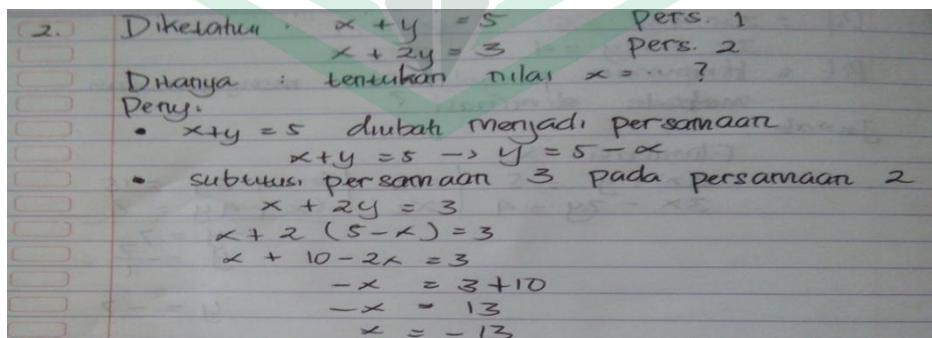 2. Diketahui : x + y = 5 Pers. 1
x + 2y = 3 Pers. 2
Ditanya : tentukan nilai x = ... ?
Peny:
• x+y = 5 diubah menjadi persamaan
x+y = 5 → y = 5 - x
• subtitusi persamaan 3 pada persamaan 2
x + 2y = 3
x + 2 (5 - x) = 3
x + 10 - 2x = 3
-x = 3 + 10
-x = 13
x = - 13